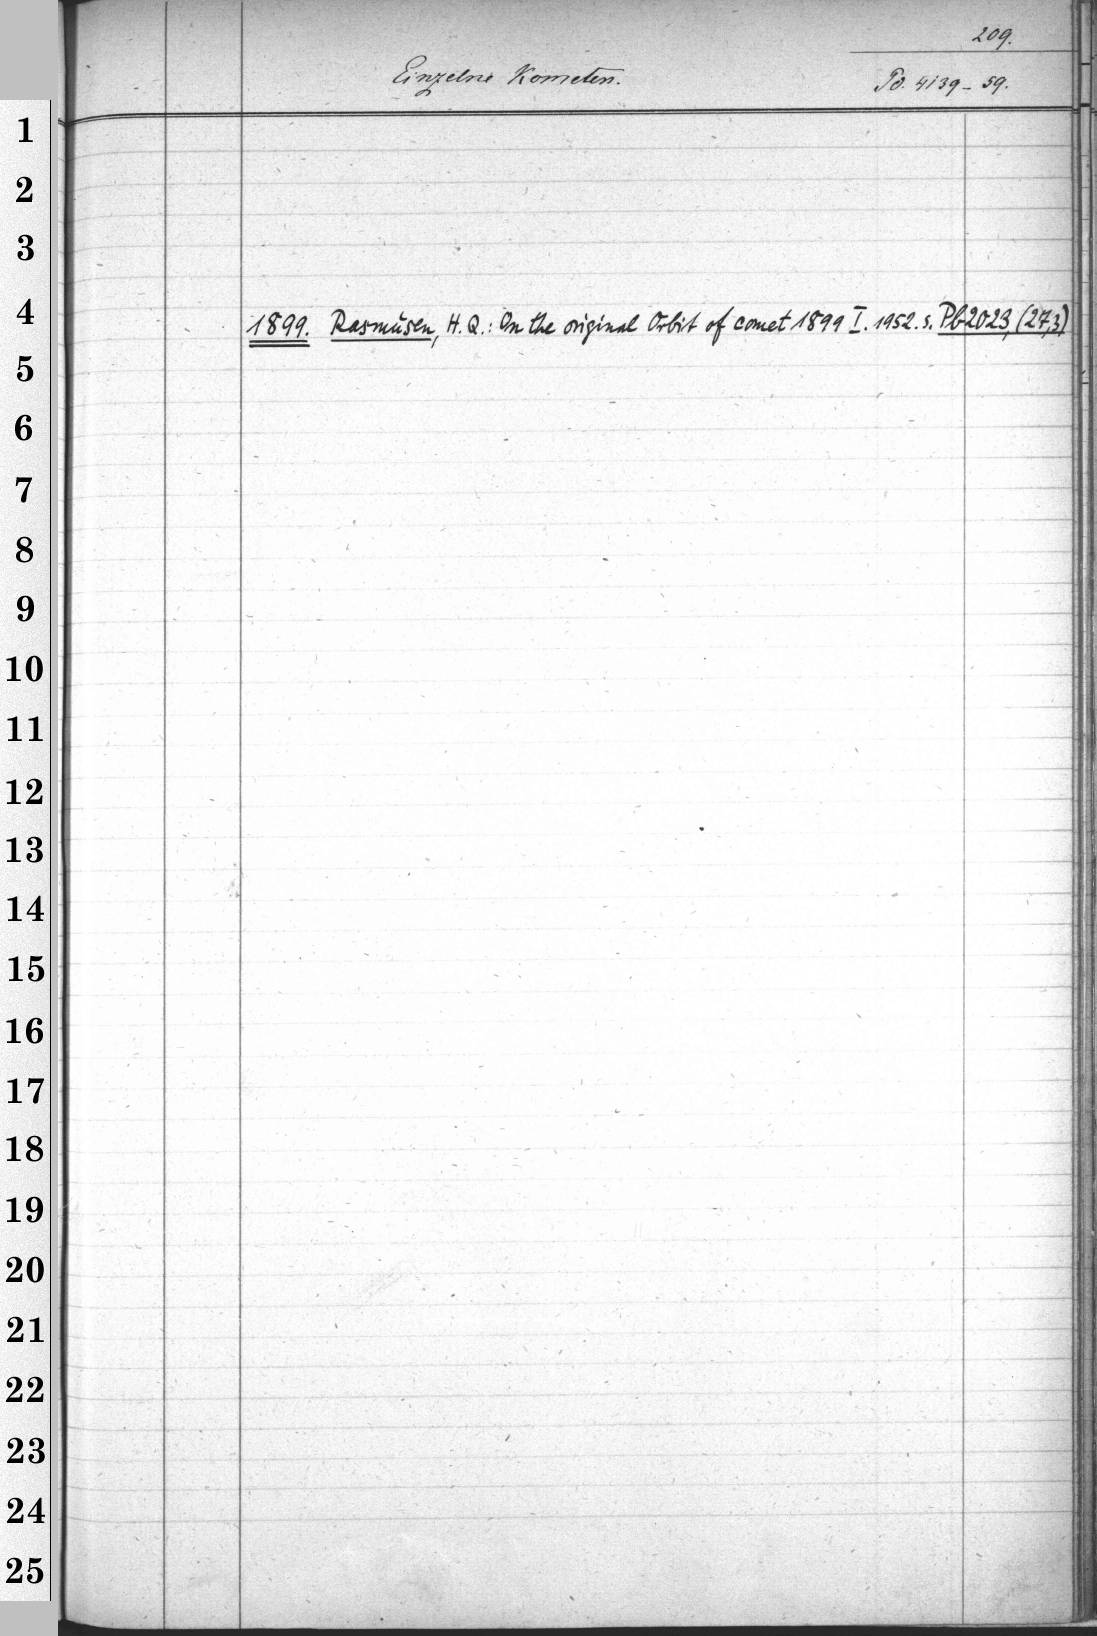 209.
Einzelne Kometen. Pd. 4139-59.
1
2
3
4
1899. Rasmusen, H. Q.: On the original Orbit of comet 1899 I. 1952. s. Pb 2023, (27,3)
5
6
7
8
9
10
11
12
13
14
15
16
17
18
19
20
21
22
23
24
25